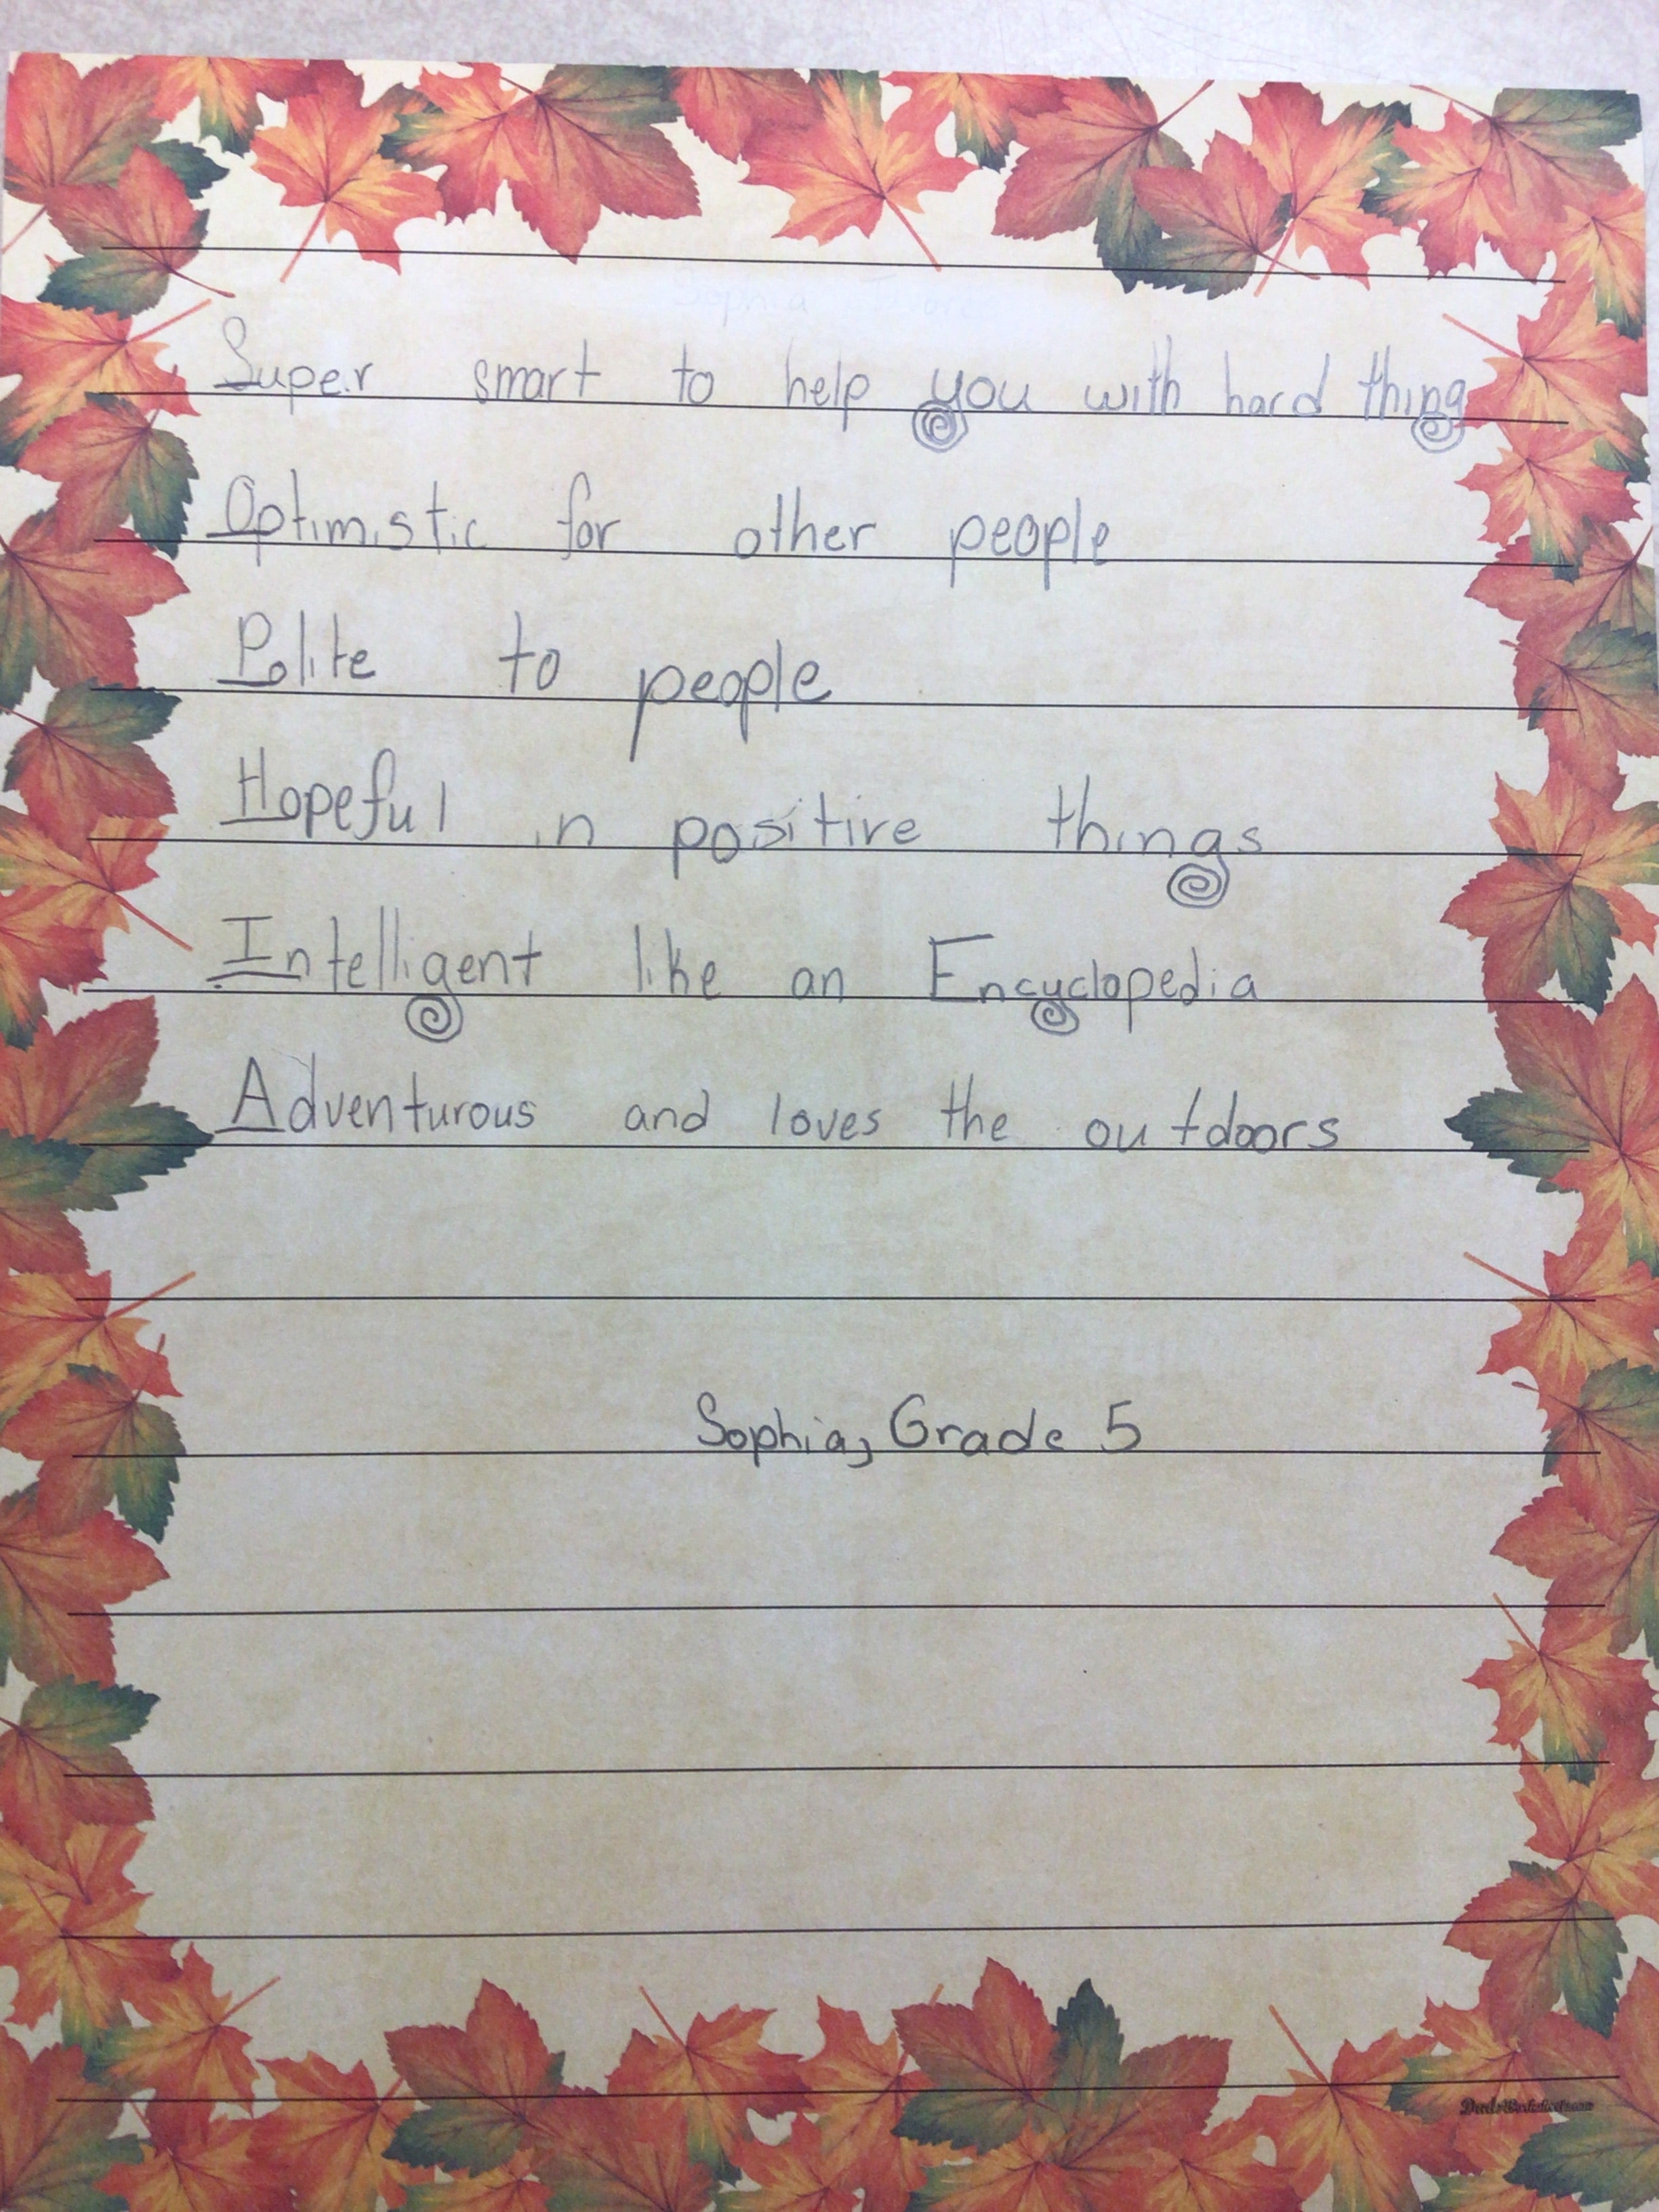 Super smart to help you with hard thing
Optimistic for other people
Polite to people
Hopeful in positive things
Intelligent like an Encyclopedia
Adventurous and loves the outdoors
Sophia, Grade 5